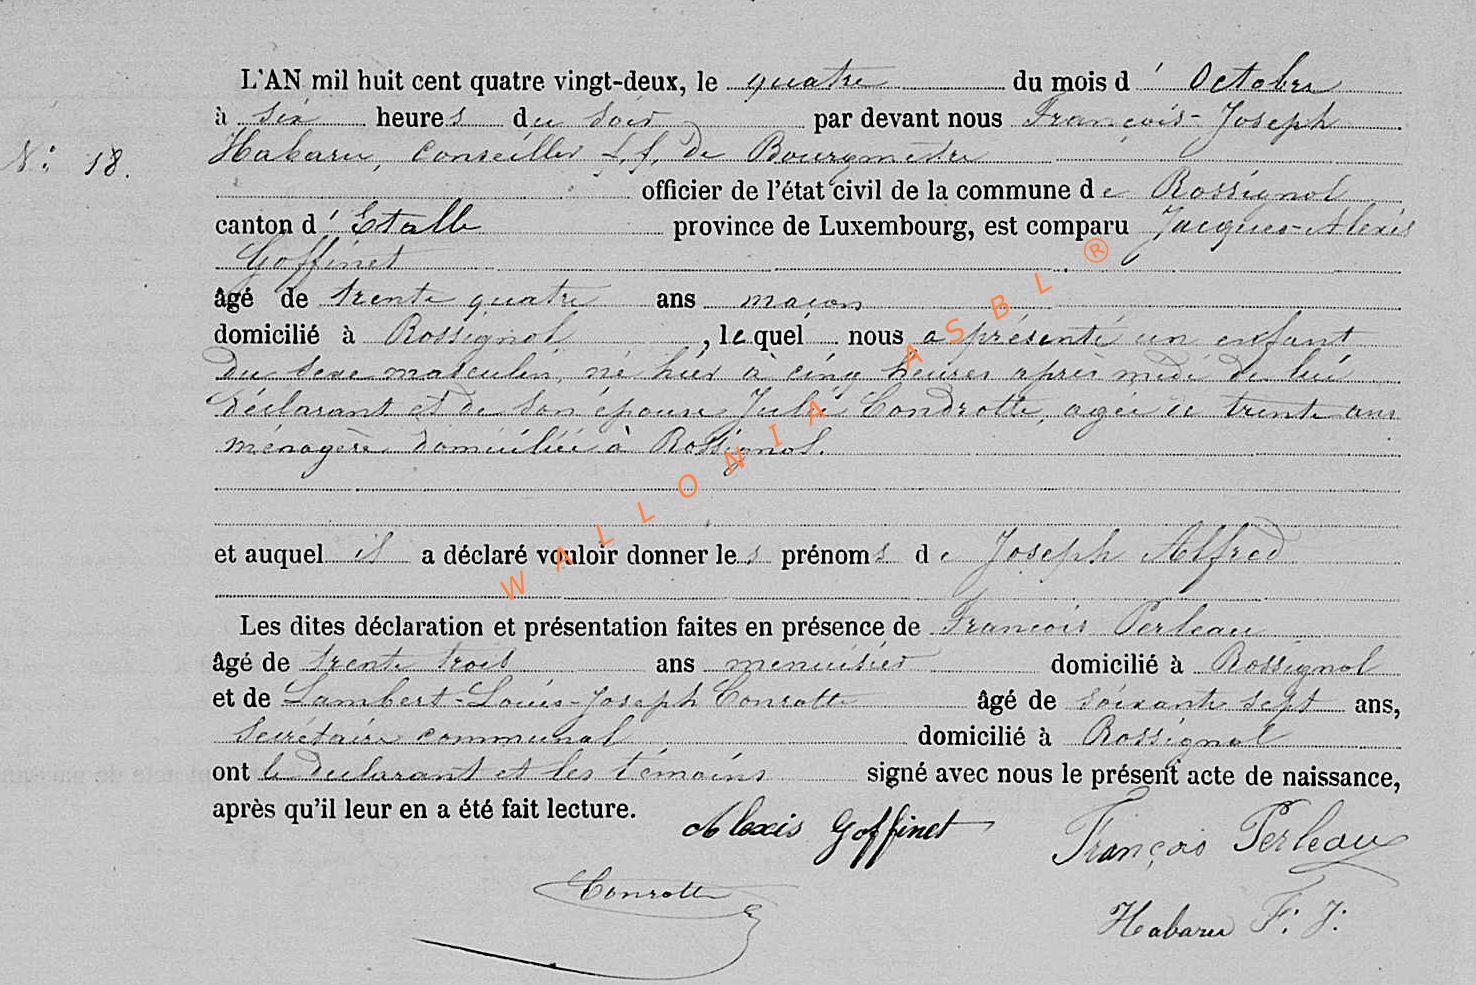 L'AN mil huit cent quatre vingt-deux, le quatre du mois d' Octobre
à six heures du soir par devant nous François-Joseph
N° 18.
Habaru, Conseiller f.f. de Bourgmestre
officier de l'état civil de la commune de Rossignol
canton d' Etalle province de Luxembourg, est comparu Jacques-Alexis
Goffinet
âgé de trente quatre ans maçon
domicilié à Rossignol, lequel nous a présenté un enfant
du sexe masculin, né hier à cinq heures après midi de lui
déclarant et de son épouse Julie Condrotte, agée de trente ans
ménagère domiciliée à Rossignol.
et auquel il a déclaré vouloir donner les prénoms de Joseph Alfred
Les dites déclaration et présentation faites en présence de François Perleau
âgé de trente trois ans menuisier domicilié à Rossignol
et de Lambert-Louis-Joseph Conrotte âgé de soixante sept ans,
secrétaire communal domicilié à Rossignol
ont le declarant et les témoins signé avec nous le présent acte de naissance,
après qu'il leur en a été fait lecture.
Alexis Goffinet
François Perleau
Conrotte
Habaru F. J.
WALLONIA ASBL ®